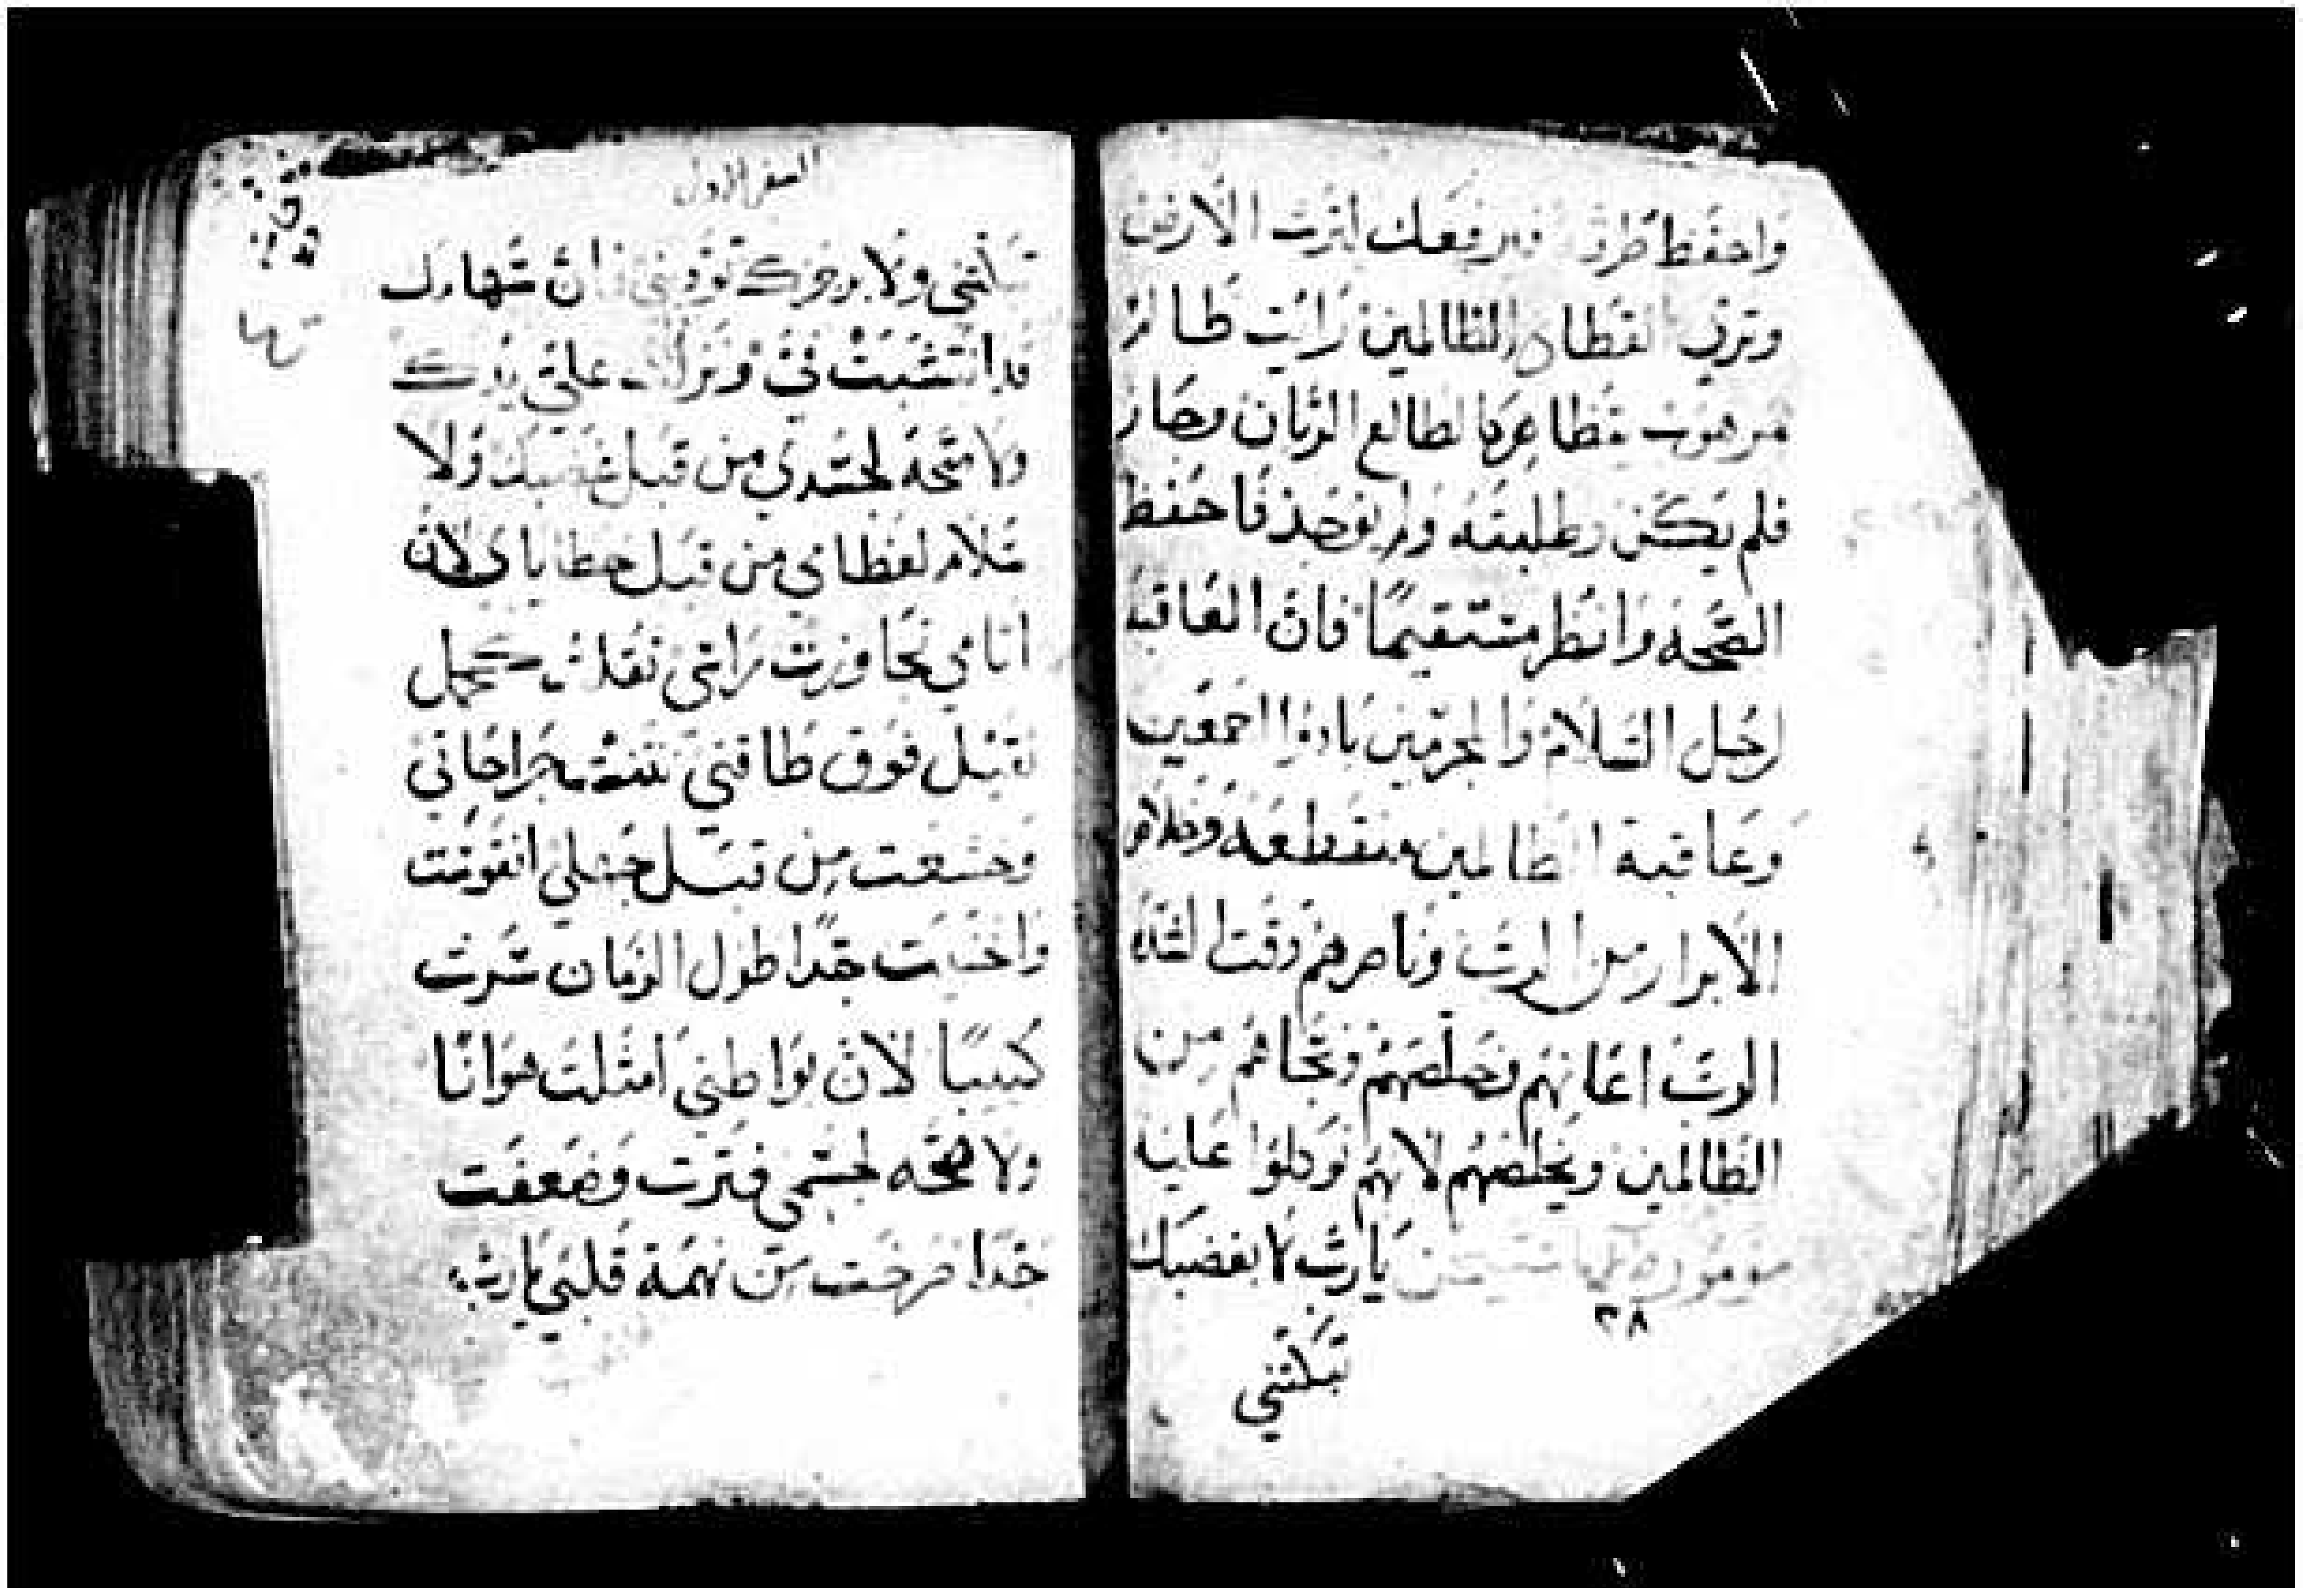 واحفظ طرقه فيرفعك لترت الارض
وترى انقطاع الظالمين رايت ظالم
مرهوب متظاعركا لطالع الزمان وجاز
فلم يكن وطلبته ولم يوجد فاحفظ
الصحه وانظر مستقيمًا فان العاقبة
لرجل السلام والمجرمين بادوا اجمعين
وعاقبة الظالمين منقطعه وخلاص
الابرار من الرب وناصرهم وقت الشده
الرب اعانهم وخلصهم ونجاهم من
الظالمين ويخلصهم لانهم توكلوا عليه
يا رب لا بغضبك
٣٨
تبكتني
السفر الاول
تبكتني ولا برجزك تؤدبني فان سهامك
قد انتشبت في ونزلت علي يدك
ولا صحة لجسدي من قبل غضبك ولا
سلام لعظامي من قبل خطاياي لان
اثامي تجاوزت راسي ثقلت كحمل
ثقيل فوق طاقتي نتنت جراحاتي
من قبل جهلي انقومت
وانحنيت جدًا طول الزمان سرت
كييبًا لان بواطني امتلت هوانًا
ولا صحه لجسمي فترت وضعفت
جدًا صرخت من نهمة قلبي يا رب